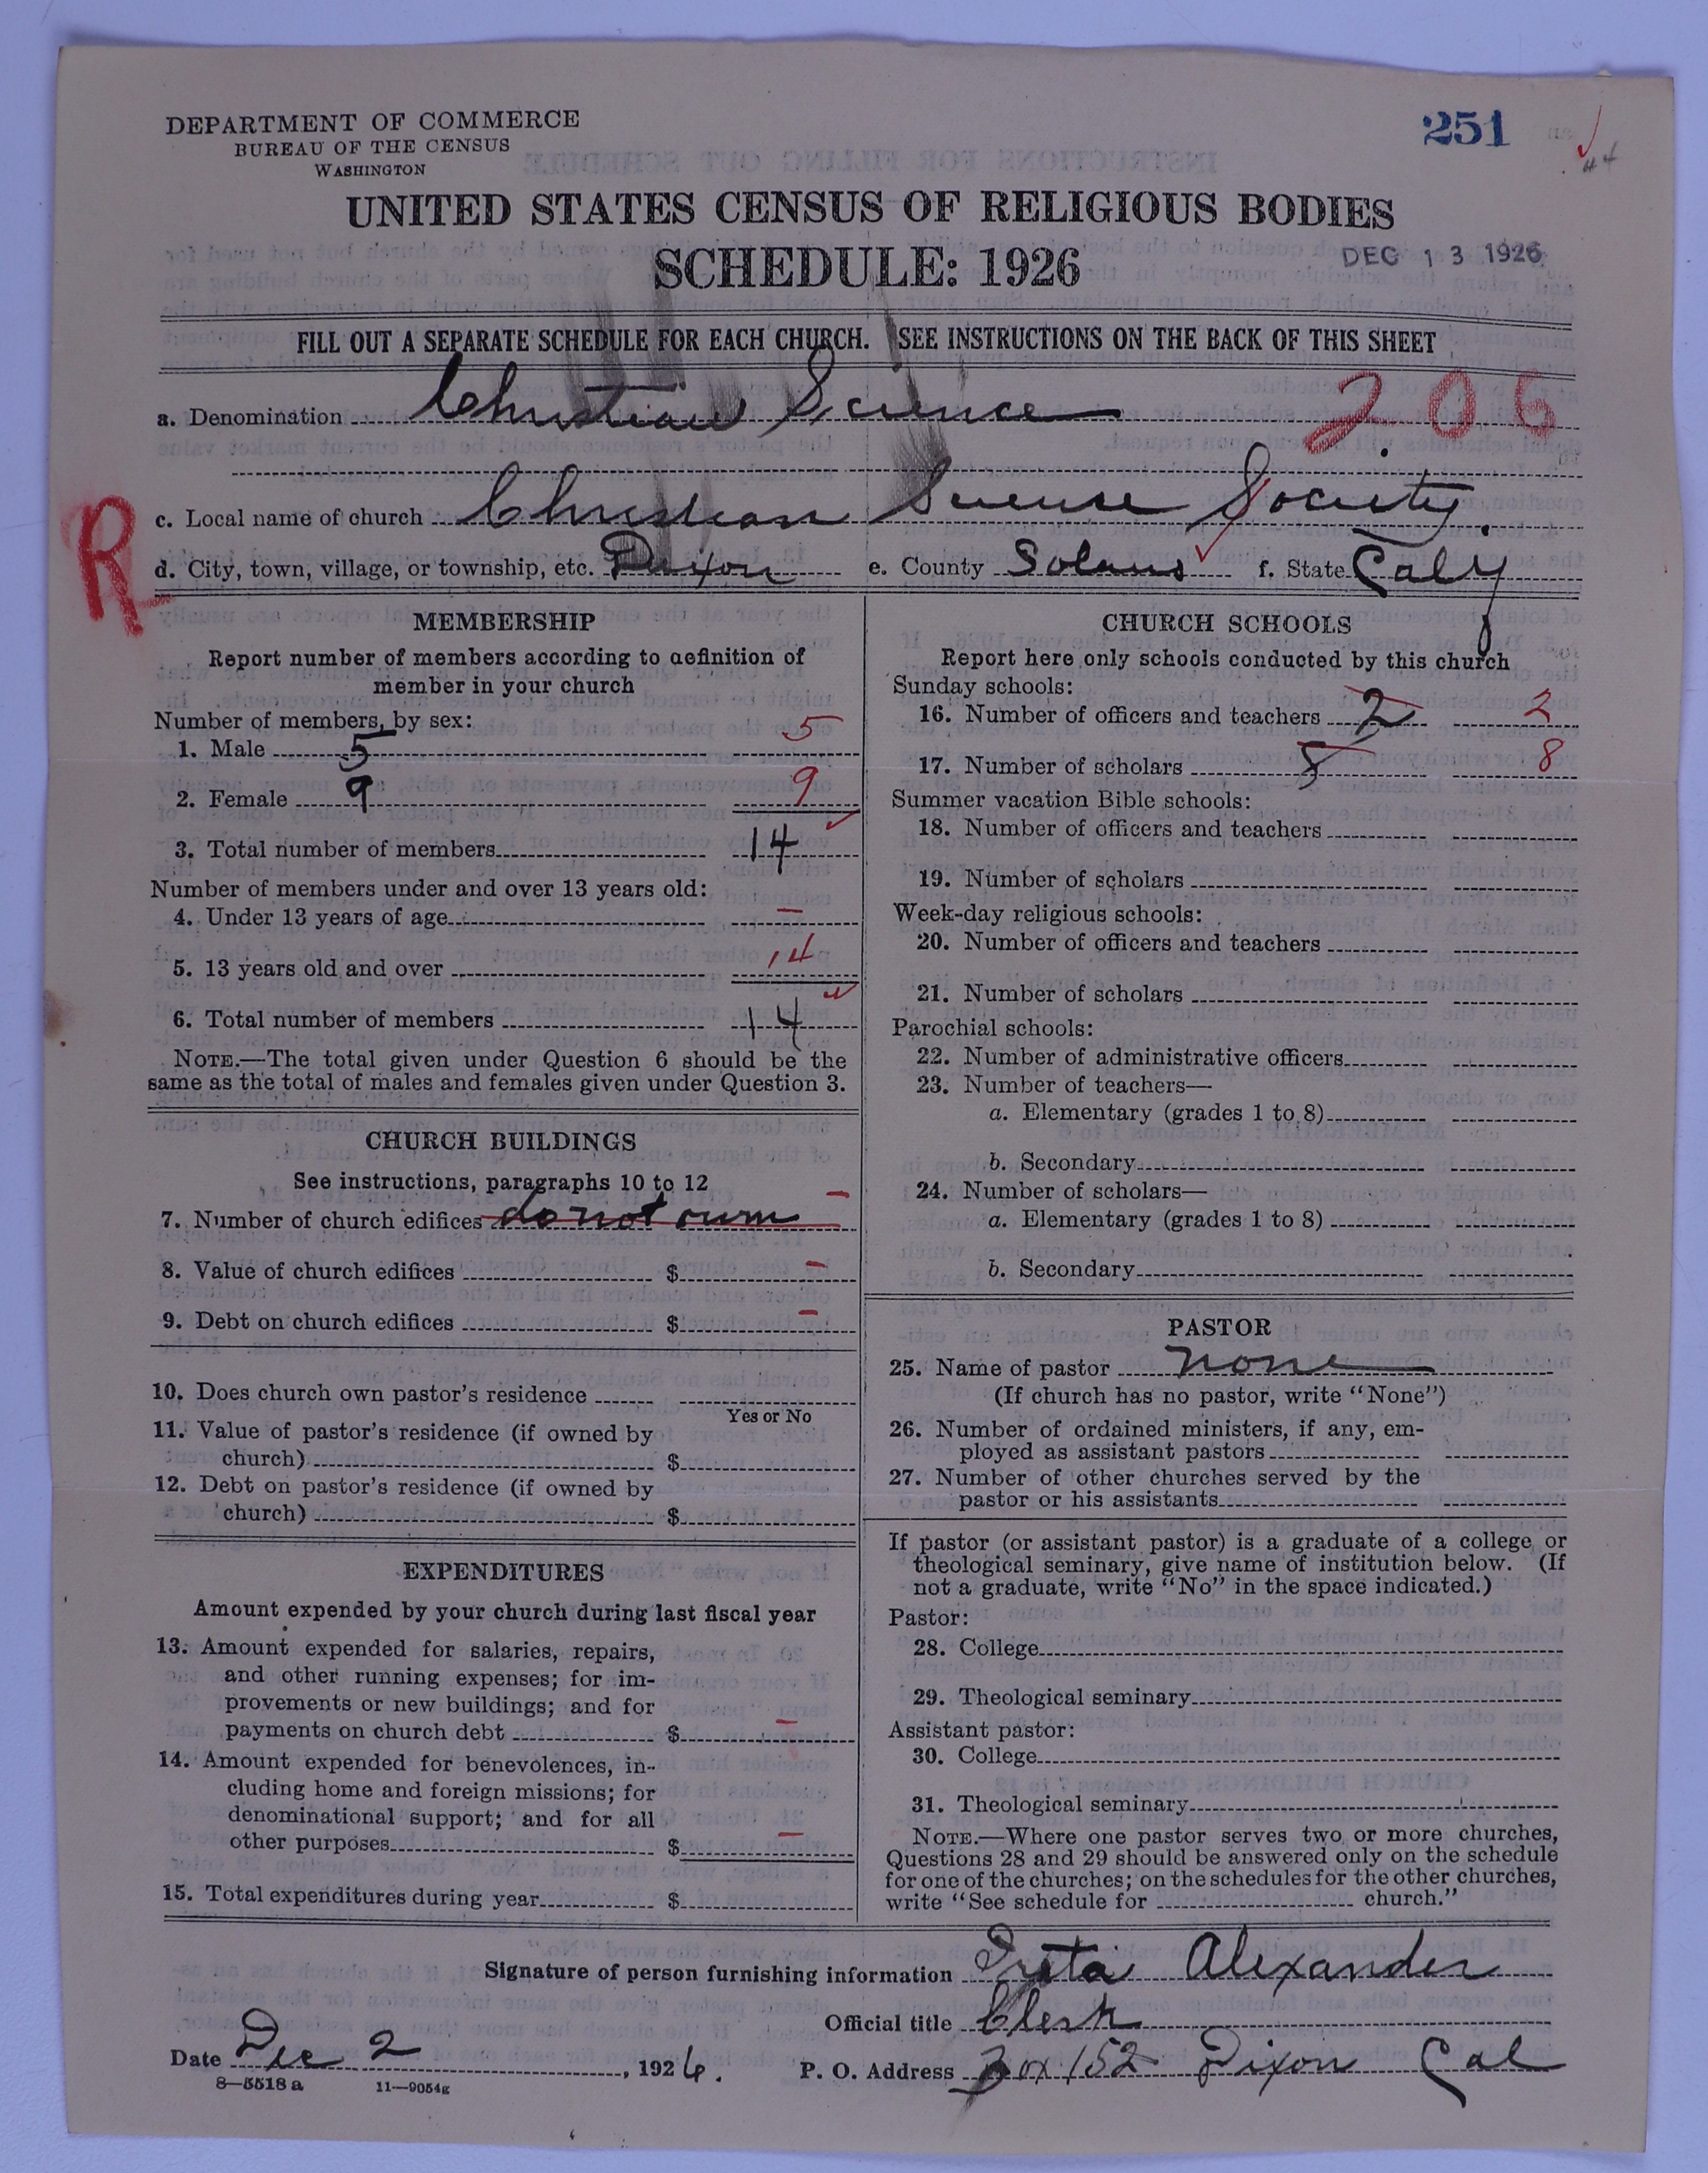 DEPARTMENT OF COMMERCE
BUREAU OF THE CENSUS
WASHINGTON
251
44
UNITED STATES CENSUS OF RELIGIOUS BODIES
SCHEDULE: 1926
DEC 13 1926
FILL OUT A SEPARATE SCHEDULE FOR EACH CHURCH. SEE INSTRUCTIONS ON THE BACK OF THIS SHEET
a. Denomination Christian Science 206
R
c. Local name of church Christian Science Society.
d. City, town, village, or township, etc. Dixon e. County Solano f. State Calif
MEMBERSHIP
Report number of members according to definition of
member in your church
Number of members, by sex:
1. Male 5 5
2. Female 9 9
3. Total number of members 14
Number of members under and over 13 years old:
4. Under 13 years of age –
5. 13 years old and over 14
6. Total number of members 14
NOTE.—The total given under Question 6 should be the
same as the total of males and females given under Question 3.
CHURCH BUILDINGS
See instructions, paragraphs 10 to 12
7. Number of church edifices do not own –
8. Value of church edifices $ –
9. Debt on church edifices $ –
10. Does church own pastor's residence
Yes or No
11. Value of pastor's residence (if owned by
church) $
12. Debt on pastor's residence (if owned by
church) $
EXPENDITURES
Amount expended by your church during last fiscal year
13. Amount expended for salaries, repairs,
and other running expenses; for im-
provements or new buildings; and for
payments on church debt $ –
14. Amount expended for benevolences, in-
cluding home and foreign missions; for
denominational support; and for all
other purposes $ –
15. Total expenditures during year $
CHURCH SCHOOLS
Report here only schools conducted by this church
Sunday schools:
16. Number of officers and teachers 2 2
17. Number of scholars 8 8
Summer vacation Bible schools:
18. Number of officers and teachers
19. Number of scholars
Week-day religious schools:
20. Number of officers and teachers
21. Number of scholars
Parochial schools:
22. Number of administrative officers
23. Number of teachers—
a. Elementary (grades 1 to 8)
b. Secondary
24. Number of scholars—
a. Elementary (grades 1 to 8)
b. Secondary
PASTOR
25. Name of pastor none
(If church has no pastor, write "None")
26. Number of ordained ministers, if any, em-
ployed as assistant pastors
27. Number of other churches served by the
pastor or his assistants
If pastor (or assistant pastor) is a graduate of a college or
theological seminary, give name of institution below. (If
not a graduate, write "No" in the space indicated.)
Pastor:
28. College
29. Theological seminary
Assistant pastor:
30. College
31. Theological seminary
NOTE.—Where one pastor serves two or more churches,
Questions 28 and 29 should be answered only on the schedule
for one of the churches; on the schedules for the other churches,
write "See schedule for church."
Signature of person furnishing information Alexander
Official title Clerk
Date Dec 2, 1926. P. O. Address Box 152 Dixon Cal
8—5518 a 11—9054g